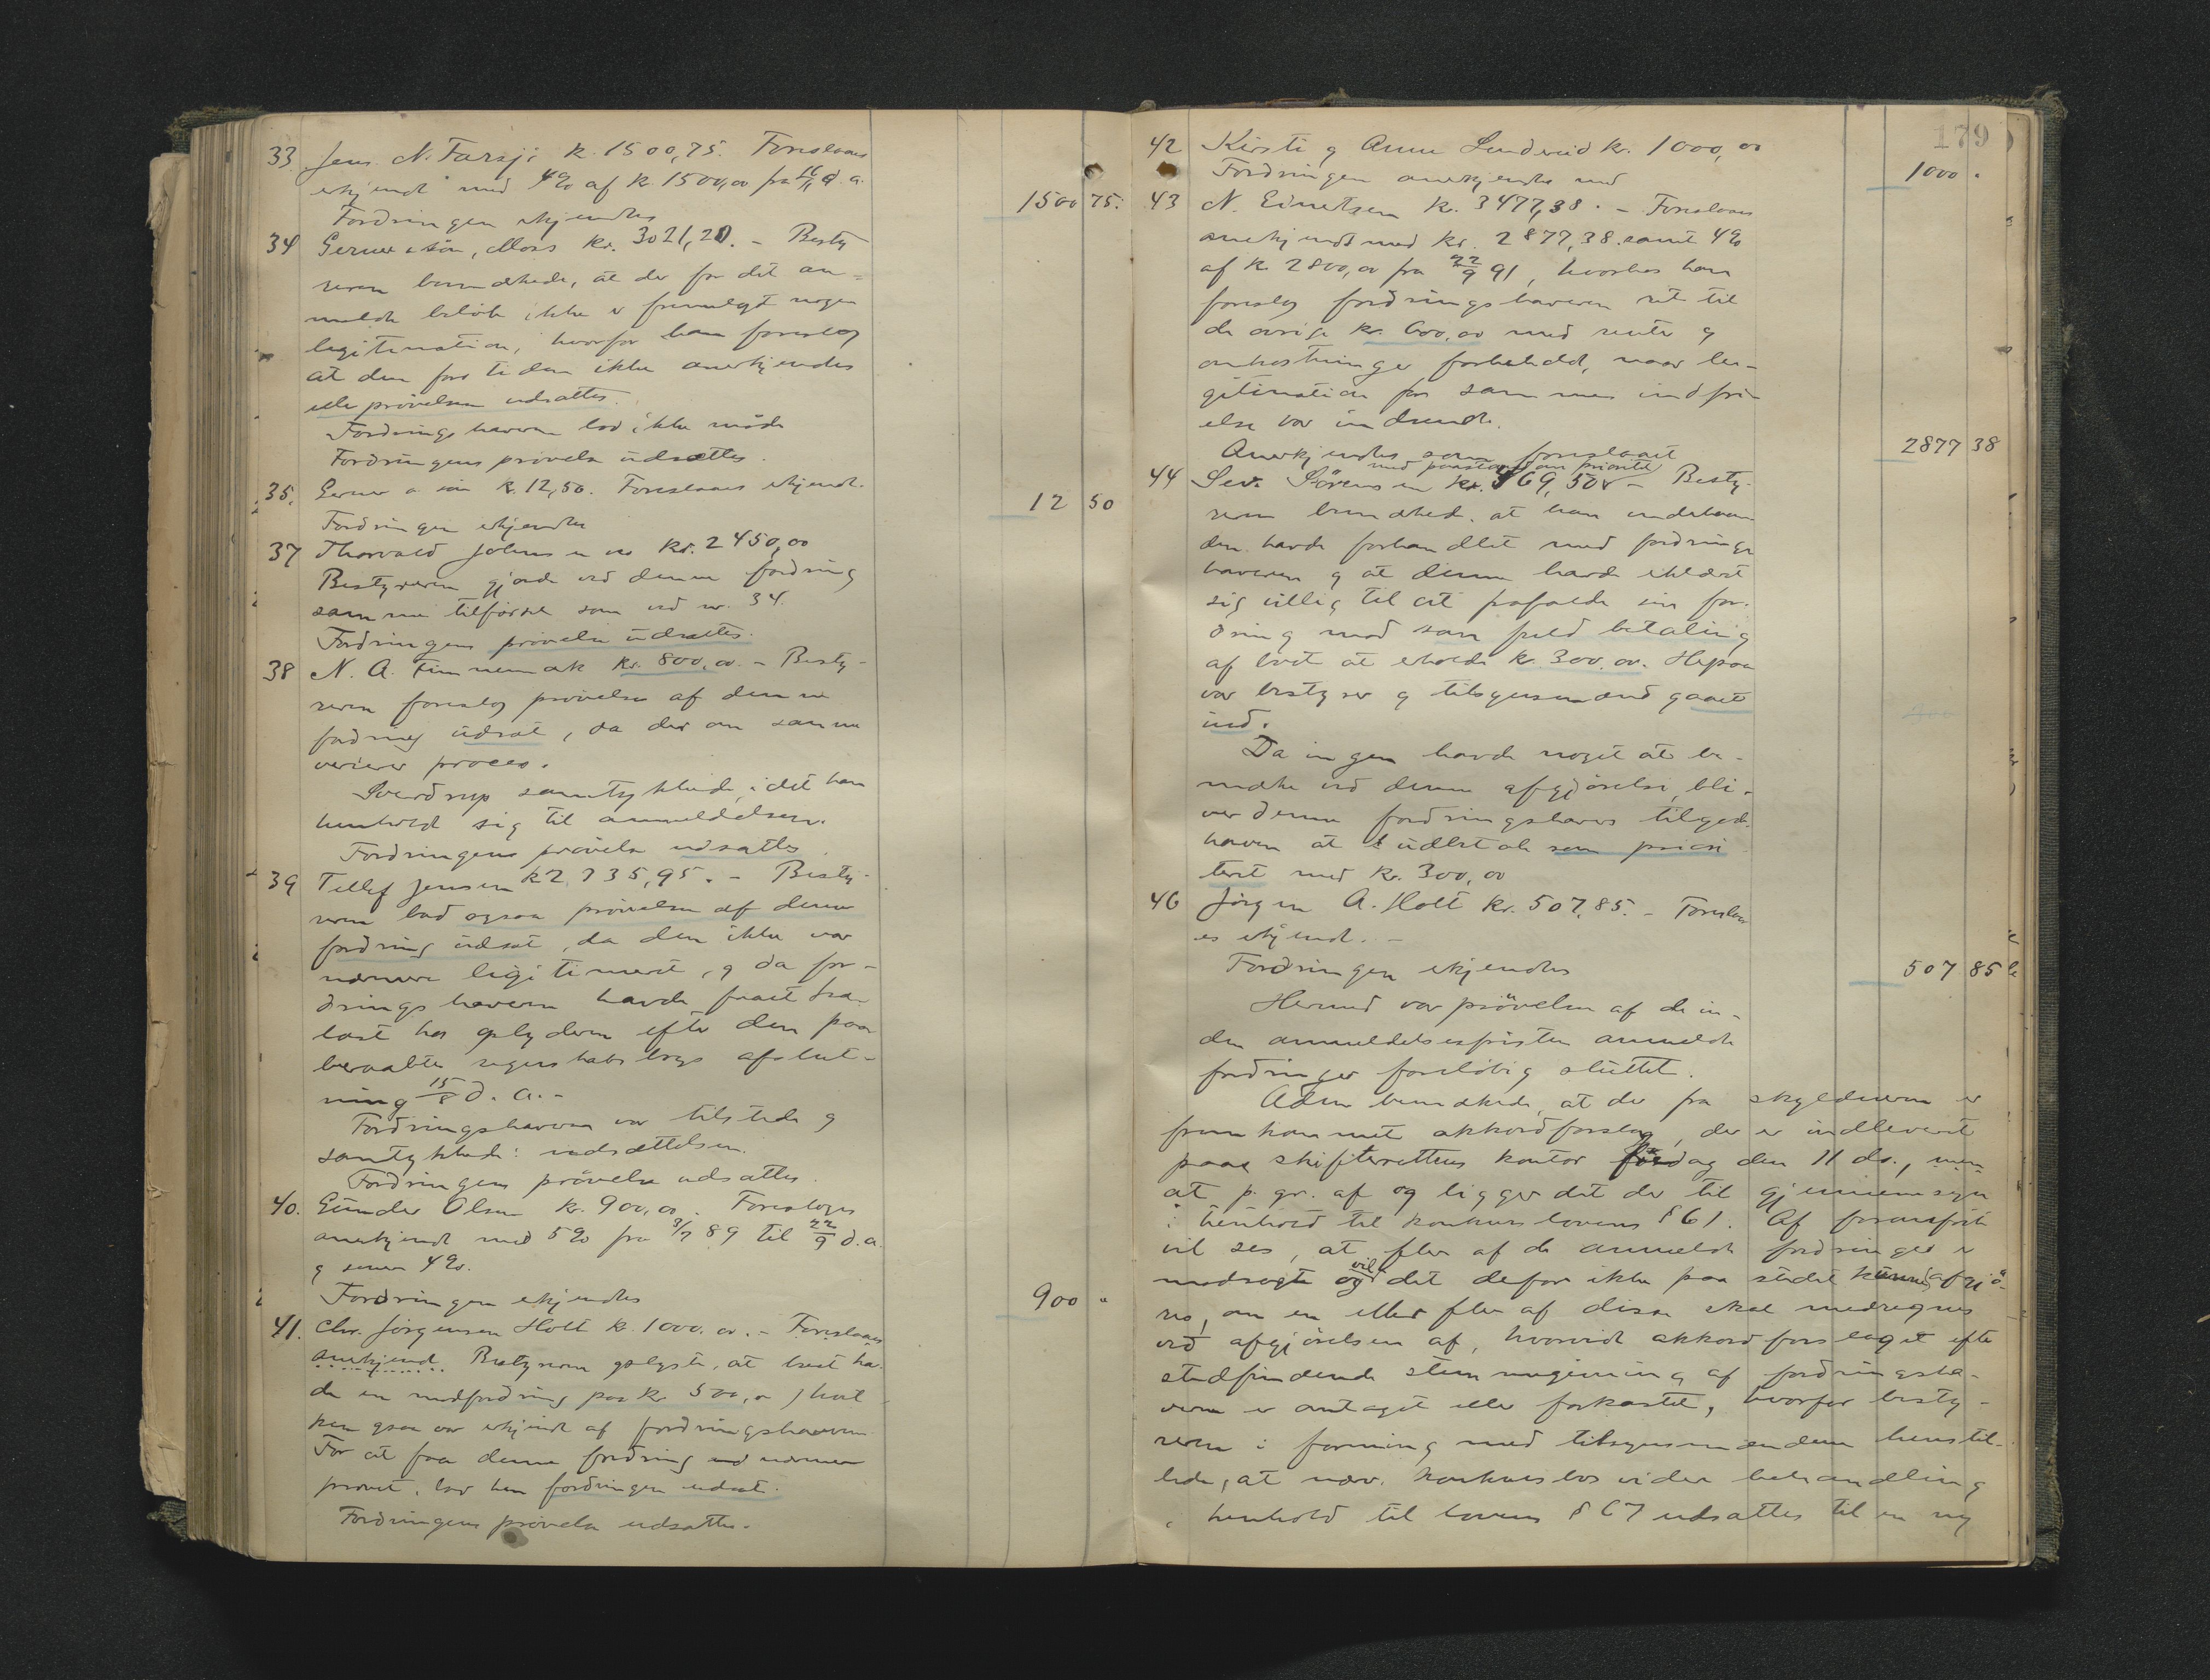 33 Jens N. Tarsji k. 1500,75. Foreslaaes
erkjendt med 4% af k. 1500,00 fra d. a.
Fordringen erkjendtes 1500 75.
34 Gerner & søn, Moss kr. 3021,20. – Besty
reren bemærkede, at der for det an-
meldte beløb ikke er fremlagt nogen
legitimation, hvorfor han foreslog
at den for tiden ikke anerkjendes
eller prøvelsen udsattes.
Fordringshaveren lod ikke møde
Fordringens prøvelse udsættes.
35. Gerner & søn k. 12,50. Foreslaaes erkjendt.
Fordringen erkjendtes 12 50
37 Thorvald Johnsen kr. 2450,00
Bestyreren gjorde ved denne fordring
samme tilførsel som ved nr. 34.
Fordringens prøvelse udsattes.
38 N. A. Finnemark kr. 800,00. – Besty-
reren foreslog prøvelse af denne
fordring udsat, da der om samme
verserer proces.
Sverdrup samtykkede, idet han
henholdt sig til anmeldelsen.
Fordringens prøvelse udsattes.
39 Tellef Jensen k 2735,95. – Besty-
reren bad ogsaa prøvelsen af denne
fordring udsat, da den ikke var
nærmere legitimeret, og da for-
dringshaveren havde faaet
last hos efter den paa-
beraabte regnskabs afslut-
ning 15/8 d. a. –
Fordringshaveren var tilstede og
samtykkede i udsættelsen.
Fordringens prøvelse udsattes.
40. Gunder Olsen kr. 900,00. Foresloges
anerkjendt med 5% fra 3/7 89 til 22/9 d. a.
og senere 4%.
Fordringen erkjendtes 900 "
41. Chr. Jørgensen Holt kr. 1000,00. – Foreslaaes
anerkjend. Bestyreren oplyste, at boet hav-
de en modfordring paa kr. 500,00, hvil-
ken ogsaa var erkjendt af fordringshaveren
For at faa denne fordring nærmere
prøvet, bad han fordringen udsat.
Fordringens prøvelse udsattes.
179
42 Kirsti og Anne Lundevid kr. 1000,00
Fordringen anerkjendtes med 1000 "
43 N. Einertsen kr. 3477,38. – Foreslaaes
anerkjendt med kr. 2877,38 samt 4%
af kr 2800,00 fra 22/9 91, hvorhos han
foreslog fordringshaveren ret til
de øvrige kr. 600,00 med renter og
omkostninger forbeholdt, naar le-
gitimation for sammes indfri-
else var indsendt.
Anerkjendtes som foreslaaet 2877 38
med paastand om prioritet
44 Sev. Sørensen kr. 369,50 – Besty-
reren bemærkede at han
den havde forhandlet med fordrings-
haveren og at denne havde erklæret
sig villig til at frafalde sin for-
dring mod som fuld betaling
af boet at erholde kr. 300,00. Herpaa
var bestyrer og tilsynsmænd gaaet
ind.
Da ingen havde noget at be-
mærke ved denne afgjørelse, bli-
ver denne fordringshavers tilgode-
havende at udbetale som priori
teret med kr. 300,00
46 Jørgen A. Holt kr. 507,85. – Foreslaa
es erkjendt. –
Fordringen erkjendtes 507 85
Hermed var prøvelsen af de in-
den anmeldelsesfristen anmeldte
fordringer foreløbig sluttet.
Adm. bemærkede, at der fra skyldneren er
fremkommet akkordforslag, der er indleveret
paa skifterettens kontor den 11 ds., men
at p. gr. af og ligger det der til gjennemsyn
i henhold til konkurslovens § 61. Af foranførte
vil ses, at flere af de anmeldte fordringer er
modsagte og vil det derfor ikke paa stedet kunne afgjø-
res, om en eller flere af disse skal medregnes
ved afgjørelsen af, hvorvidt akkordforslaget efter
stedfindende stemmegivning af fordringsha-
verne er antaget eller forkastet, hvorfor besty-
reren i forening med tilsynsmændene henstil-
lede, at nærv. konkursbos videre behandling
i henhold til lovens § 67 udsattes til en ny